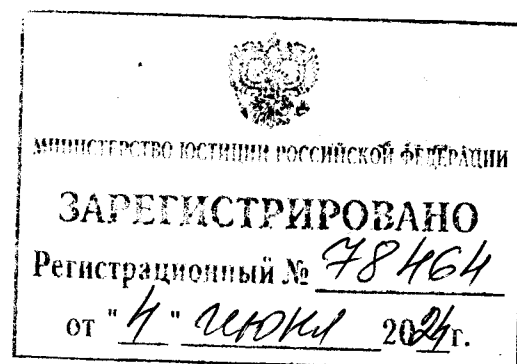 МИНИСТЕРСТВО ЮСТИЦИИ РОССИЙСКОЙ ФЕДЕРАЦИИ
ЗАРЕГИСТРИРОВАНО
Регистрационный № 78464
от "4" июня 2024г.